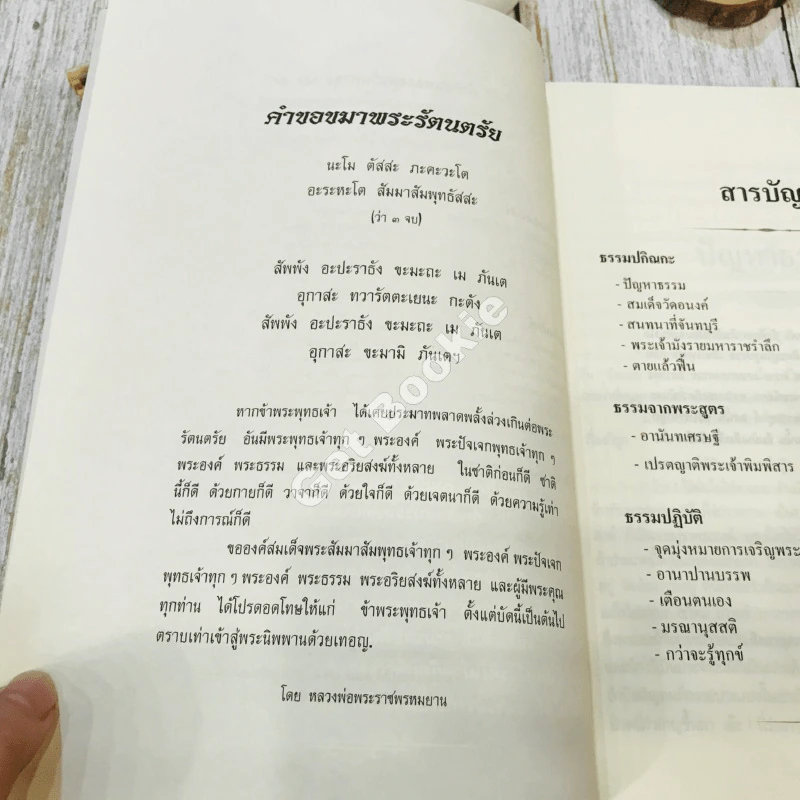 คำขอขมาพระรัตนตรัย
นะโม ตัสสะ ภะคะวะโต
อะระหะโต สัมมาสัมพุทธัสสะ
(ว่า ๓ จบ)
สัพพัง อะปะราธัง ขะมะถะ เม ภันเต
อุกาสะ ทวารัตตะเยนะ กะตัง
สัพพัง อะปะราธัง ขะมะถะ เม ภันเต
อุกาสะ ขะมามิ ภันเตฯ
หากข้าพระพุทธเจ้า ได้เคยประมาทพลาดพลั้งล่วงเกินต่อพระ
รัตนตรัย อันมีพระพุทธเจ้าทุก ๆ พระองค์ พระปัจเจกพุทธเจ้าทุก ๆ
พระองค์ พระธรรม และพระอริยสงฆ์ทั้งหลาย ในชาติก่อนก็ดี ชาติ
นี้ก็ดี ด้วยกายก็ดี วาจาก็ดี ด้วยใจก็ดี ด้วยเจตนาก็ดี ด้วยความรู้เท่า
ไม่ถึงการณ์ก็ดี
ขอองค์สมเด็จพระสัมมาสัมพุทธเจ้าทุก ๆ พระองค์ พระปัจเจก
พุทธเจ้าทุก ๆ พระองค์ พระธรรม พระอริยสงฆ์ทั้งหลาย และผู้มีพระคุณ
ทุกท่าน ได้โปรดอดโทษให้แก่ ข้าพระพุทธเจ้า ตั้งแต่บัดนี้เป็นต้นไป
ตราบเท่าเข้าสู่พระนิพพานด้วยเทอญ.
โดย หลวงพ่อพระราชพรหมยาน
สารบัญ
ธรรมปกิณกะ
- ปัญหาธรรม
- สมเด็จวัดอนงค์
- สนทนาที่จันทบุรี
- พระเจ้ามังรายมหาราชรำลึก
- ตายแล้วฟื้น
ธรรมจากพระสูตร
- อานันทเศรษฐี
- เปรตญาติพระเจ้าพิมพิสาร
ธรรมปฏิบัติ
- จุดมุ่งหมายการเจริญพระ
- อานาปานบรรพ
- เตือนตนเอง
- มรณานุสสติ
- กว่าจะรู้ทุกข์
Get Bookie